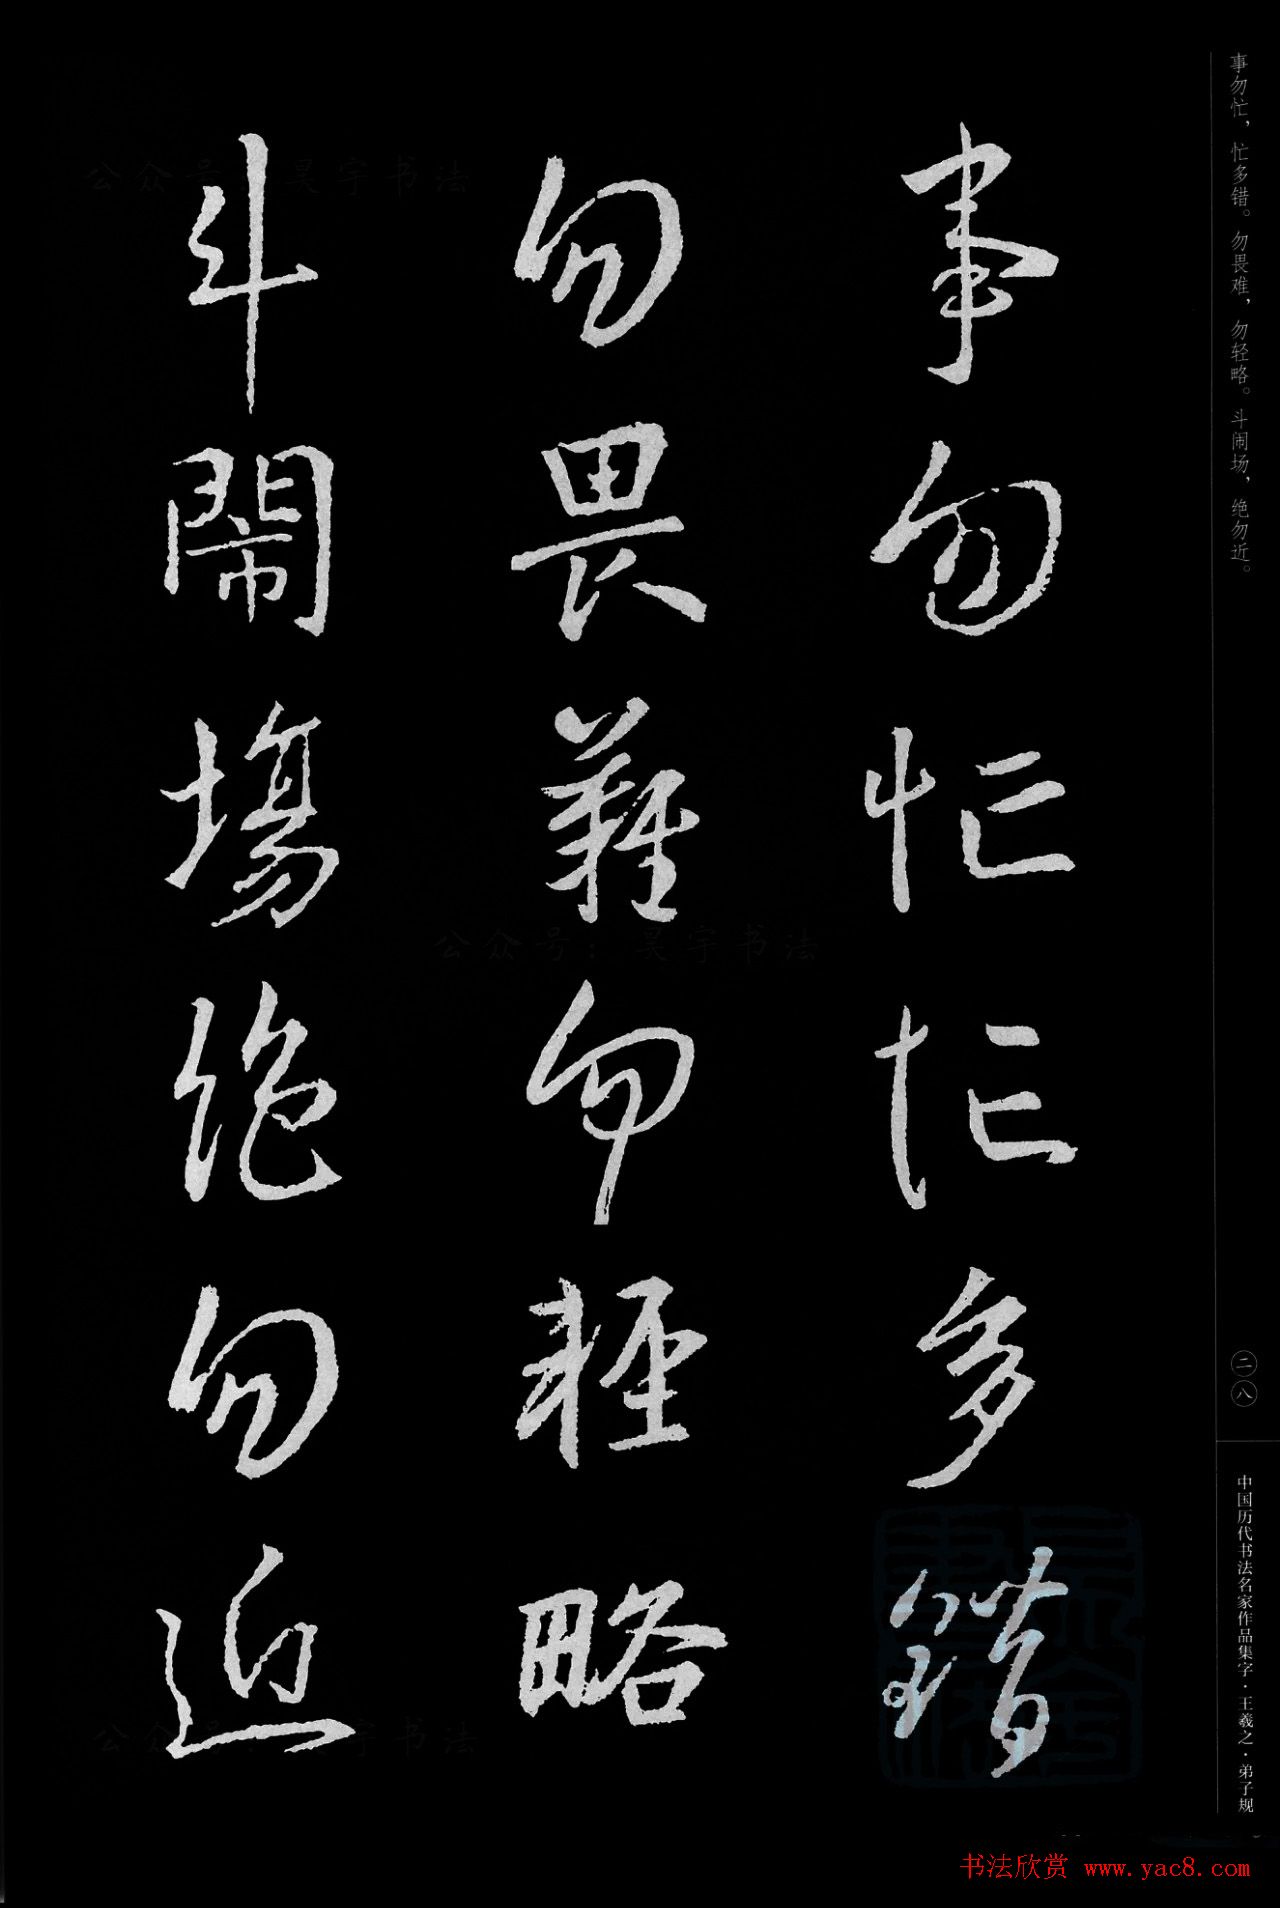 事勿忙，忙多错。勿畏难，勿轻略。斗闹场，绝勿近。
事勿忙忙多錯
勿畏難勿輕略
斗鬧場絕勿近
二八
中国历代书法名家作品集字·王羲之·弟子规
公众号：昊宇书法
公众号：昊宇书法
公众号：昊宇书法
书法欣赏 www.yac8.com